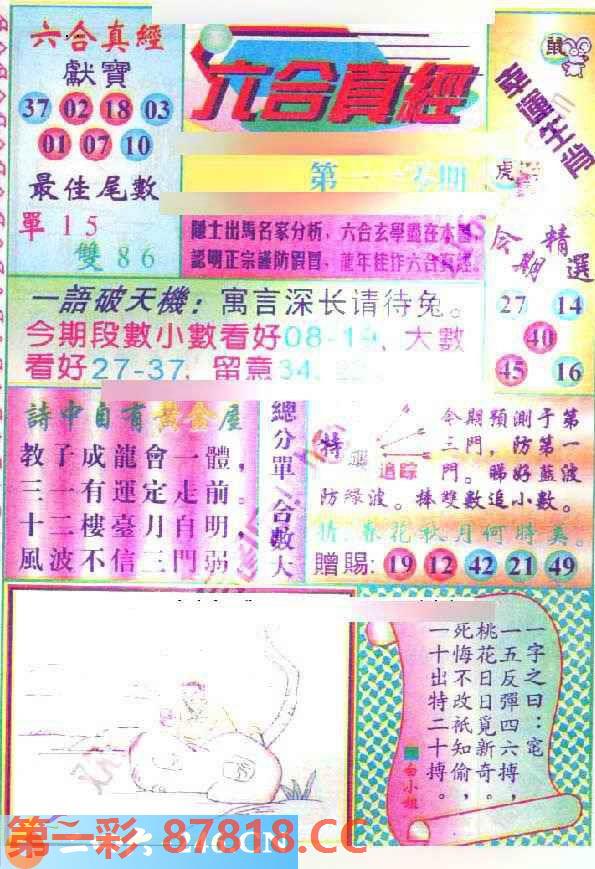 六合真經
獻寶
37 02 18 03
01 07 10
最佳尾數
單 15
雙 86
六合真經
隱士出馬名家分析、六合玄學盡在本
認明正宗謹防假冒，龍年佳作六合真經。
鼠
幸運生肖
虎
今期精選
27 14
40
45 16
一語破天機：寓言深长请待兔。
今期段數小數看好08-19、大數
看好27-37、留意34、
詩中自有黃金屋
教子成龍會一體，
三一有運定走前。
十二樓臺月自明，
風波不信三門弱
總分單
合數大
特
追踪
今期預測于第
三門，防第一
門。睇好藍波
防绿波。捧雙數追小數。
猜：春花秋月何時美。
贈賜: 19 12 42 21 49
一字之曰：宅
一五反彈四六搏，
桃花日日覓新奇。
死悔不改衹知偷，
一十出特二十搏。
白小姐
第一彩 87818.CC